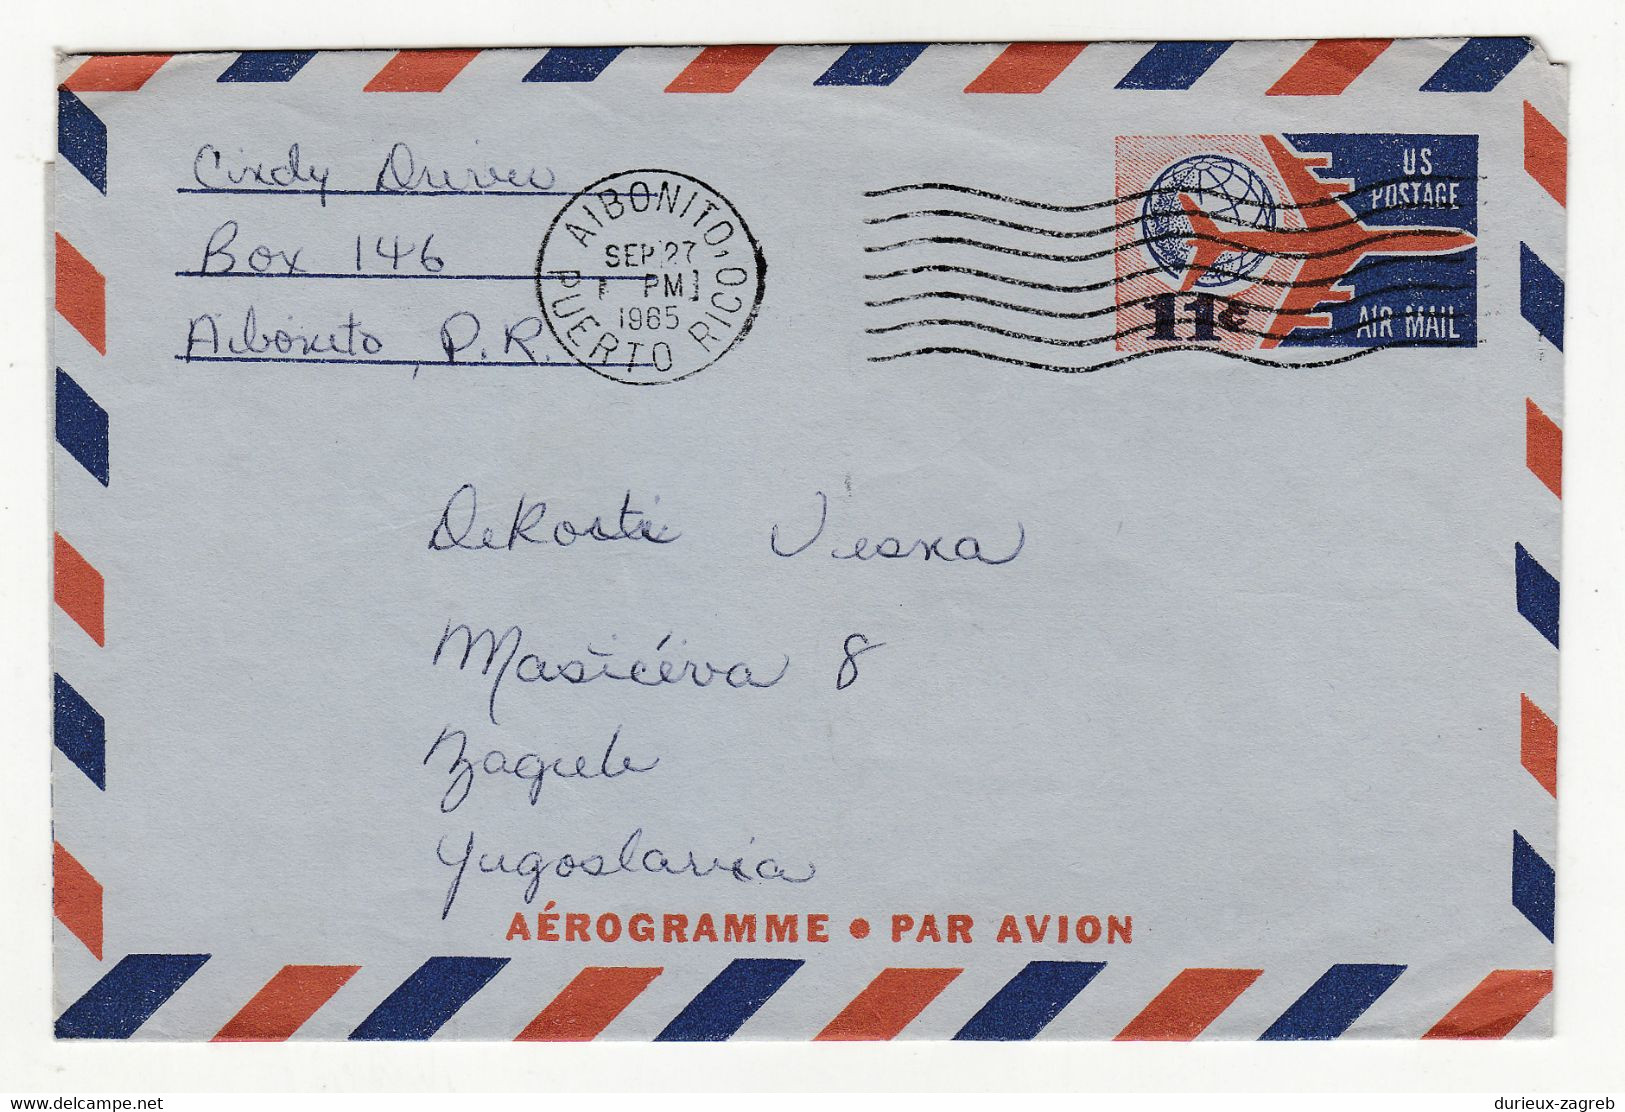 Cindy Driver
Box 146
Aibonito, P.R.
AIBONITO,
SEP 27
PM
1965
PUERTO RICO
US
POSTAGE
11¢
AIR MAIL
DeKosti Vesna
Masićeva 8
Zagreb
Yugoslavia
AÉROGRAMME • PAR AVION
www.delcampe.net
durieux-zagreb